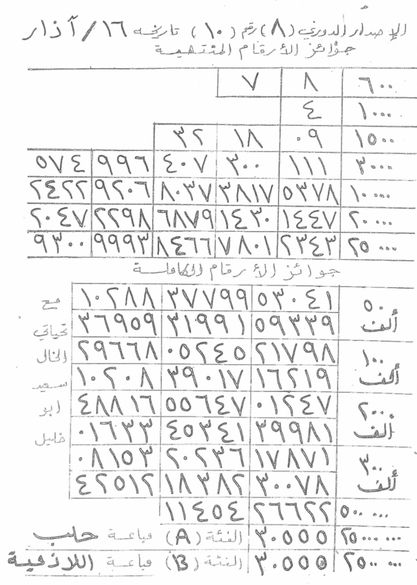 الإصدار الدوري (٨) رقم (١٠) تاريخ ١٦/آذار
جوائز الأرقام المنتهية
٦٠٠ ٨ ٧
١٠٠٠ ٤
١٥٠٠ ٠٩ ١٨ ٣٢
٣٠٠٠ ١١١ ٣٠٠ ٤٠٧ ٩٩٦ ٥٧٤
١٠٠٠٠ ٥٣٧٨ ٣٨١٧ ٨٠٣٧ ٩٢٠٦ ٢٤٢٢
٢٠٠٠٠ ١٤٤٧ ١٤٣٠ ٦٨٧٩ ٢٢٩٨ ٢٠٤٧
٢٥٠٠٠ ٢٣٤٣ ٧٨٠١ ٨٤٦٦ ٩٩٩٣ ٩٣٠٠
جوائز الأرقام الكاملة
٥٠ ٥٣٠٤١ ٣٧٧٩٩ ١٠٢٨٨ مع
ألف ٥٩٣٣٩ ٣١٩٩١ ٣٦٩٥٩ تحياتي
١٠٠ ٢١٧٩٨ ٠٥٢٤٥ ٢٩٦٦٨ الخال
ألف ١٦٢١٩ ٣٩٠١٧ ١٠٢٠٨ سعيد
٢٠٠ ٠١٢٤٧ ٥٥٦٤٧ ٤٨٨١٦ ابو
ألف ٣٩٩٨١ ٤٥٣٤١ ٠١٦٣٣ خليل
٣٠٠ ١٧٨٧١ ٢٠٢٣٦ ٠٨١٥٣
ألف ٣٠٠٧٨ ١٨٣٨٢ ٤٢٥١٢
٥٠٠٠٠٠ ٢٦٦٢٢ ١١٤٥٤
٢٥٠٠٠٠٠٠ ٣٠٥٥٥ الفئة (A) مباعة حلب
٢٥٠٠٠٠٠ ٣٠٥٥٥ الفئة (B) مباعة اللاذقية